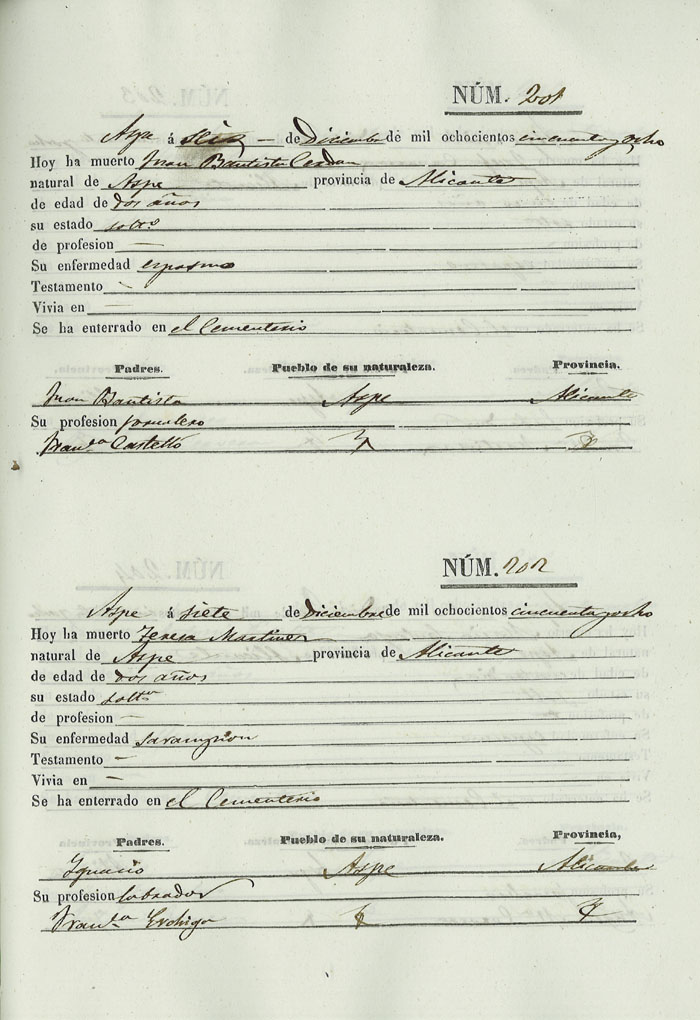 NÚM. 201
Aspe á Seis de Diciembre de mil ochocientos cincuenta y ocho
Hoy ha muerto Juan Bautista Cerdan
natural de Aspe provincia de Alicante
de edad de dos años
su estado solto
de profesion —
Su enfermedad espasmo
Testamento —
Vivia en —
Se ha enterrado en el Cementerio
Padres. Pueblo de su naturaleza. Provincia.
Juan Bautista Aspe Alicante
Su profesion jornalero
Franca Castelló
NÚM. 202
Aspe á siete de Diciembre de mil ochocientos cincuenta y ocho
Hoy ha muerto Teresa Martinez
natural de Aspe provincia de Alicante
de edad de dos años
su estado solta
de profesion —
Su enfermedad sarampion
Testamento —
Vivia en —
Se ha enterrado en el Cementerio
Padres. Pueblo de su naturaleza. Provincia,
Ignacio Aspe Alicante
Su profesion labrador
Franca